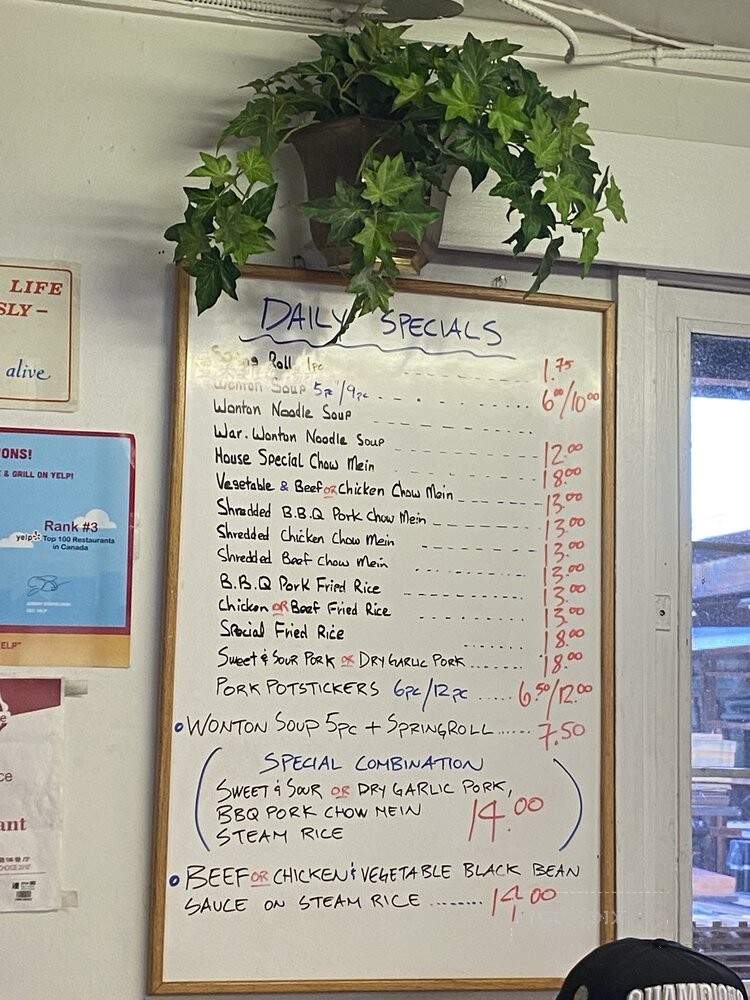 LIFE
SLY -
alive
ONS!
E & GRILL ON YELP!
Rank #3
yelp Top 100 Restaurants
in Canada
YELP"
ce
ant
DAILY SPECIALS
Spring Roll 1pc 1.75
Wonton Soup 5pc/9pc 6.00/10.00
Wonton Noodle Soup
War. Wonton Noodle Soup 12.00
House Special Chow Mein 18.00
Vegetable & Beef OR Chicken Chow Mein 13.00
Shredded B.B.Q Pork Chow Mein 13.00
Shredded Chicken Chow Mein 13.00
Shredded Beef Chow Mein 13.00
B.B.Q Pork Fried Rice 13.00
Chicken OR Beef Fried Rice 13.00
Special Fried Rice 18.00
Sweet & Sour Pork OR Dry Garlic Pork 18.00
PORK POTSTICKERS 6pc/12pc 6.50/12.00
• WONTON SOUP 5pc + SPRINGROLL 7.50
SPECIAL COMBINATION
SWEET & SOUR OR DRY GARLIC PORK,
BBQ PORK CHOW MEIN 14.00
STEAM RICE
• BEEF OR CHICKEN & VEGETABLE BLACK BEAN
SAUCE ON STEAM RICE 14.00
CHAMPIONS